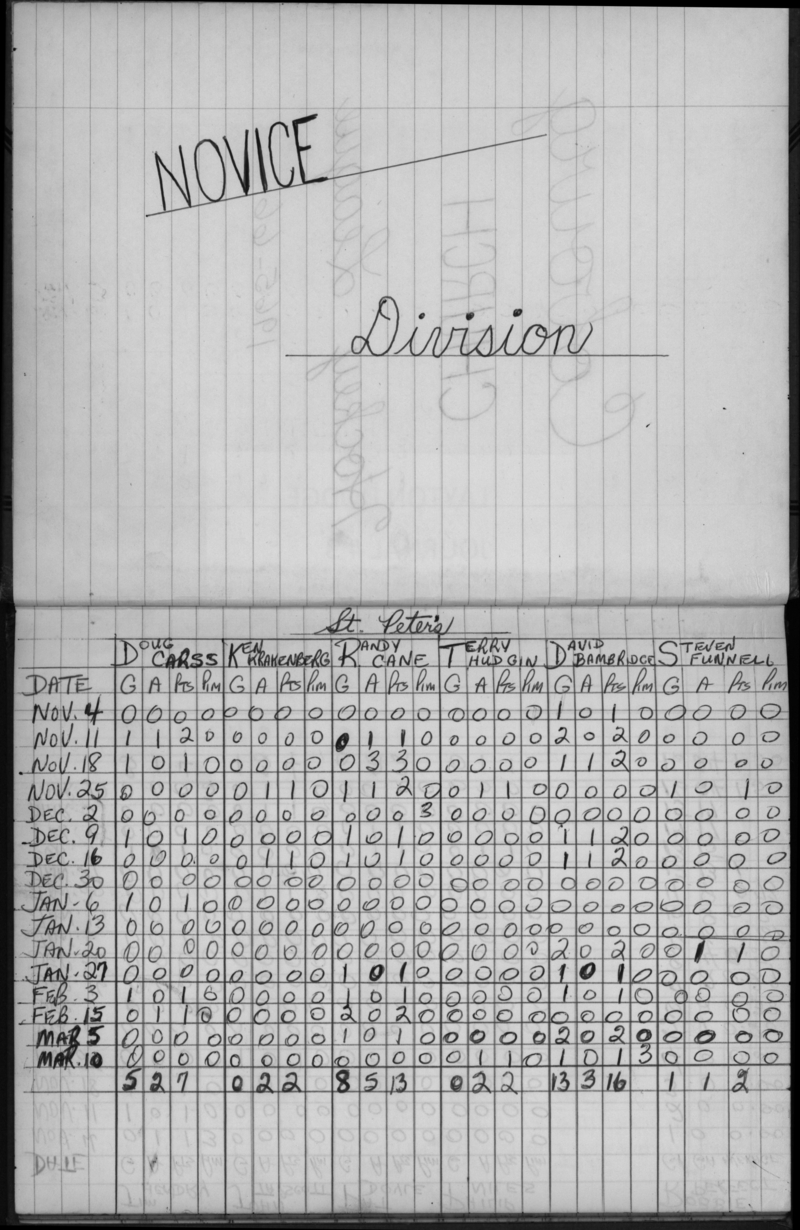 NOVICE
Division
St. Peter's
DOUG CARSS KEN KRAKENBERG RANDY CANE TERRY HUDGIN DAVID BAMBRIDGE STEVEN FUNNELL
DATE G A Pts Pim G A Pts Pim G A Pts Pim G A Pts Pim G A Pts Pim G A Pts Pim
NOV. 4 0 0 0 0 0 0 0 0 0 0 0 0 0 0 0 0 1 0 1 0 0 0 0 0
NOV. 11 1 1 2 0 0 0 0 0 0 1 1 0 0 0 0 0 2 0 2 0 0 0 0 0
NOV. 18 1 0 1 0 0 0 0 0 0 3 3 0 0 0 0 0 1 1 2 0 0 0 0 0
NOV. 25 0 0 0 0 0 1 1 0 1 1 2 0 0 1 1 0 0 0 0 0 1 0 1 0
DEC. 2 0 0 0 0 0 0 0 0 0 0 0 3 0 0 0 0 0 0 0 0 0 0 0 0
DEC. 9 1 0 1 0 0 0 0 0 1 0 1 0 0 0 0 0 1 1 2 0 0 0 0 0
DEC. 16 0 0 0 0 0 1 1 0 1 0 1 0 0 0 0 0 1 1 2 0 0 0 0 0
DEC. 30 0 0 0 0 0 0 0 0 0 0 0 0 0 0 0 0 0 0 0 0 0 0 0 0
JAN-6 1 0 1 0 0 0 0 0 0 0 0 0 0 0 0 0 0 0 0 0 0 0 0 0
JAN. 13 0 0 0 0 0 0 0 0 0 0 0 0 0 0 0 0 0 0 0 0 0 0 0 0
JAN. 20 0 0 0 0 0 0 0 0 0 0 0 0 0 0 0 0 2 0 2 0 0 1 1 0
JAN. 27 0 0 0 0 0 0 0 0 1 0 1 0 0 0 0 0 1 0 1 0 0 0 0 0
FEB. 3 1 0 1 0 0 0 0 0 1 0 1 0 0 0 0 0 1 0 1 0 0 0 0 0
FEB. 15 0 1 1 0 0 0 0 0 2 0 2 0 0 0 0 0 0 0 0 0 0 0 0 0
MAR 5 0 0 0 0 0 0 0 0 1 0 1 0 0 0 0 0 2 0 2 0 0 0 0 0
MAR. 10 0 0 0 0 0 0 0 0 0 0 0 0 0 1 1 0 1 0 1 3 0 0 0 0
5 2 7 0 2 2 8 5 13 0 2 2 13 3 16 1 1 2